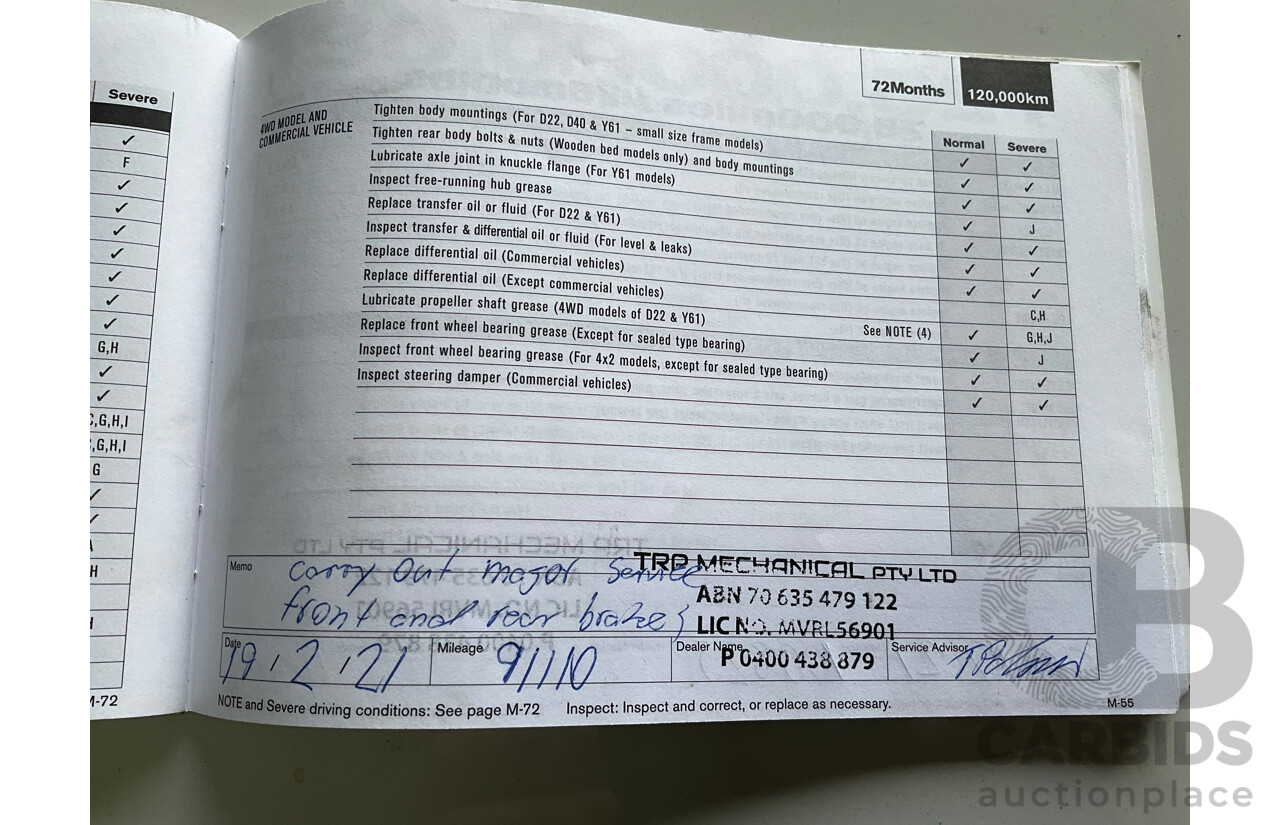 Severe
F
G,H
C,G,H,I
C,G,H,I
G
A
H
M-72
72Months
120,000km
4WD MODEL AND
COMMERCIAL VEHICLE
Normal Severe
Tighten body mountings (For D22, D40 & Y61 – small size frame models) ✓ ✓
Tighten rear body bolts & nuts (Wooden bed models only) and body mountings ✓ ✓
Lubricate axle joint in knuckle flange (For Y61 models) ✓ ✓
Inspect free-running hub grease ✓ J
Replace transfer oil or fluid (For D22 & Y61) ✓ ✓
Inspect transfer & differential oil or fluid (For level & leaks) ✓ ✓
Replace differential oil (Commercial vehicles) ✓
Replace differential oil (Except commercial vehicles) C,H
Lubricate propeller shaft grease (4WD models of D22 & Y61) See NOTE (4) ✓ G,H,J
Replace front wheel bearing grease (Except for sealed type bearing) ✓ J
Inspect front wheel bearing grease (For 4x2 models, except for sealed type bearing) ✓ ✓
Inspect steering damper (Commercial vehicles) ✓ ✓
Memo
Carry out major service
front and rear brakes
TRP MECHANICAL PTY LTD
ABN 70 635 479 122
LIC NO. MVRL56901
P 0400 438 879
Date 19/2/21
Mileage 91110
Dealer Name
Service Advisor
NOTE and Severe driving conditions: See page M-72 Inspect: Inspect and correct, or replace as necessary.
M-55
CARBIDS
auctionplace